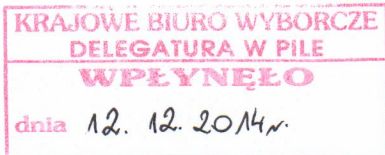 KRAJOWE BIURO WYBORCZE
DELEGATURA W PILE
WPŁYNĘŁO
dnia 12. 12. 2014 r.